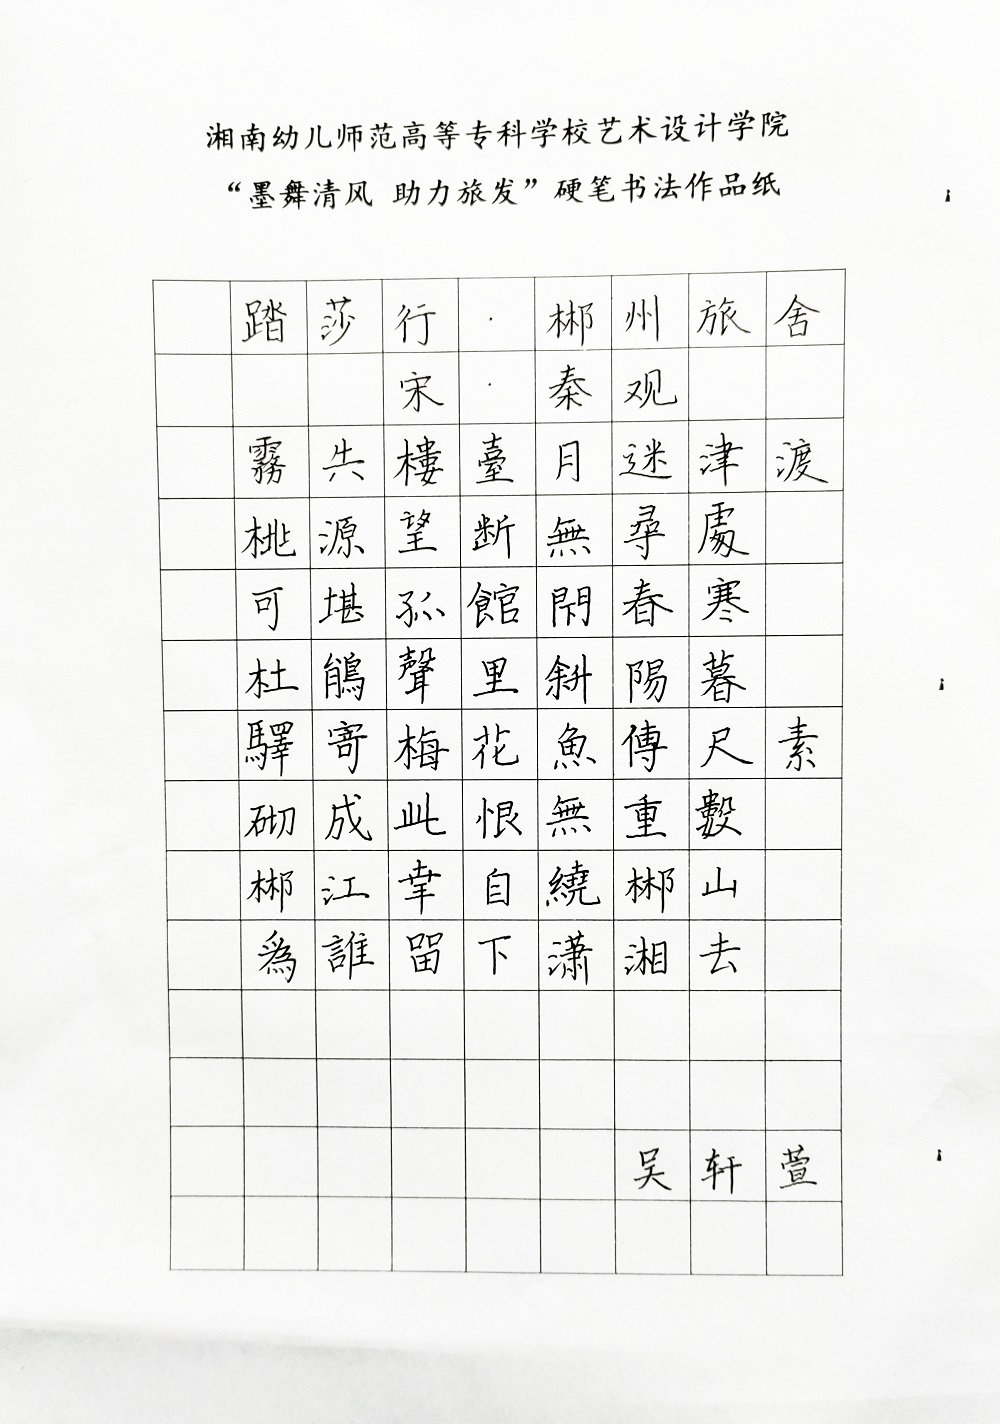 湘南幼儿师范高等专科学校艺术设计学院
“墨舞清风 助力旅发”硬笔书法作品纸
踏莎行·郴州旅舍
宋·秦观
霧失樓臺月迷津渡
桃源望断無尋處
可堪孤館閉春寒
杜鵑聲里斜陽暮
驛寄梅花魚傳尺素
砌成此恨無重數
郴江幸自繞郴山
爲誰留下潇湘去
吴轩萱